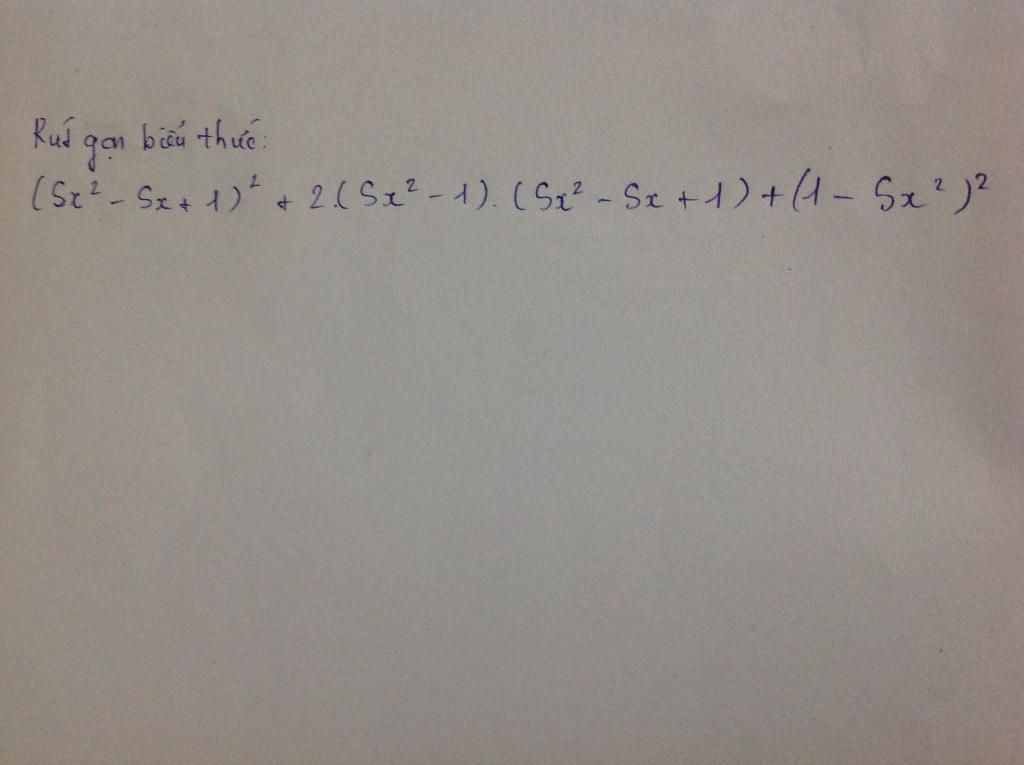 Rút gọn biểu thức:
(5x² - 5x + 1)² + 2.(5x² - 1).(5x² - 5x + 1) + (1 - 5x²)²